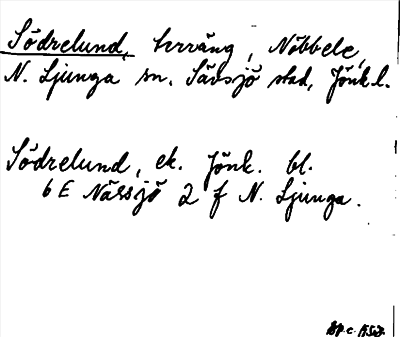 Södrelund, torräng, Nöbbele,
N. Ljunga sn. Sävsjö stad, Jönk.l.
Södrelund, ek. Jönk. bl.
6 E Nässjö 2 f N. Ljunga.